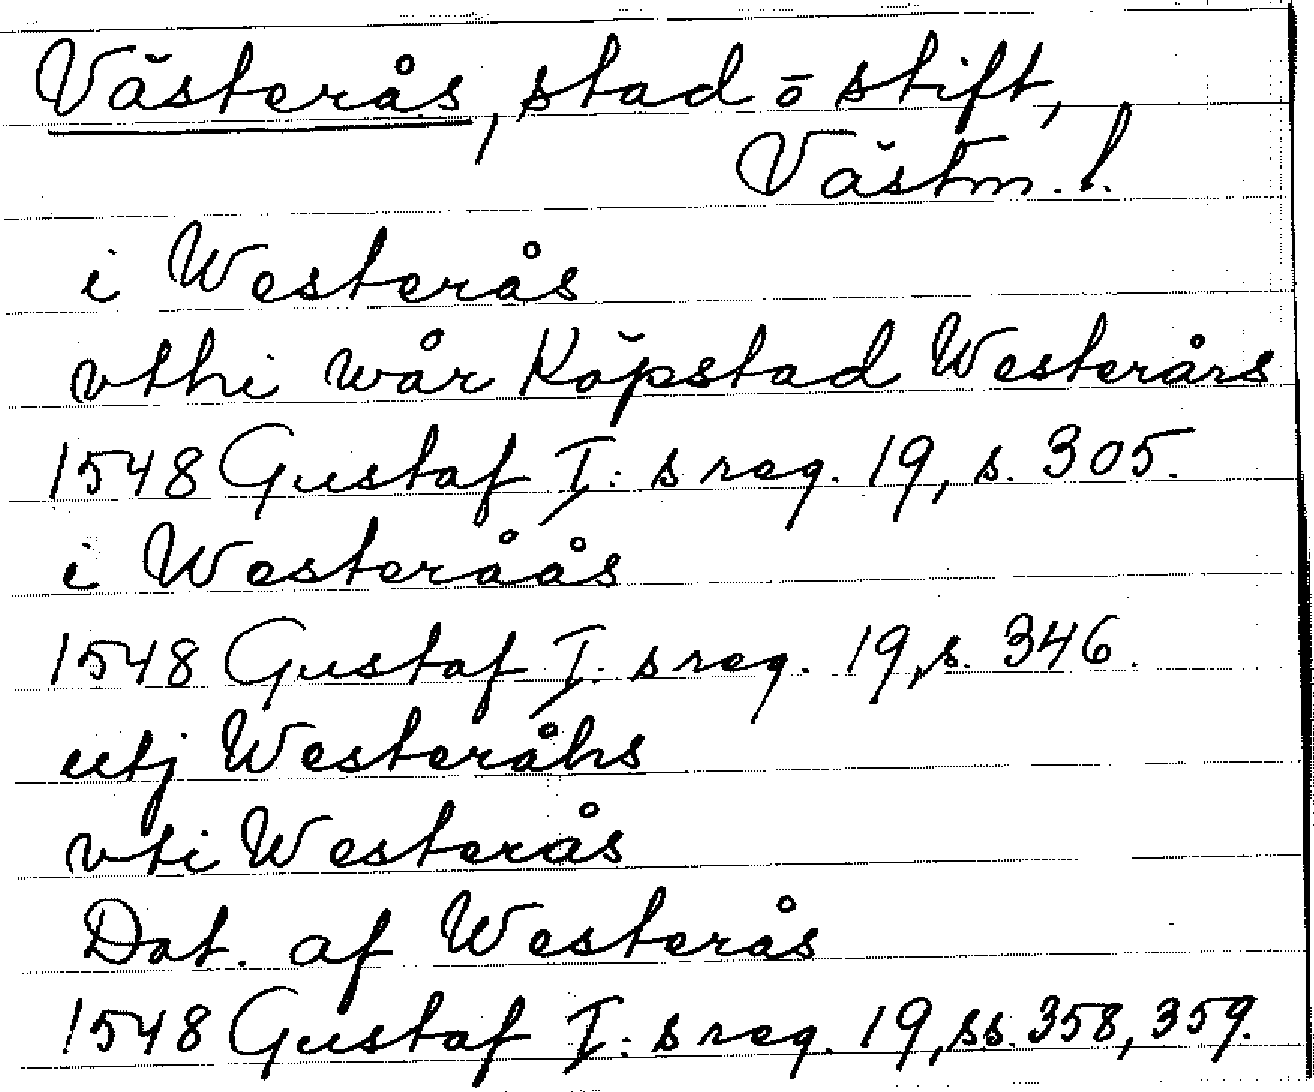 Västerås, stad o stift,
Västm. l.
i Westerås
vthi wår Köpstad Westerårs
1548 Gustaf I: s reg. 19, s. 305.
i Westeråås
1548 Gustaf I: s reg. 19, s. 346.
utj Westeråhs
vti Westerås
Dat. af Westerås
1548 Gustaf I: s reg. 19, ss. 358, 359.